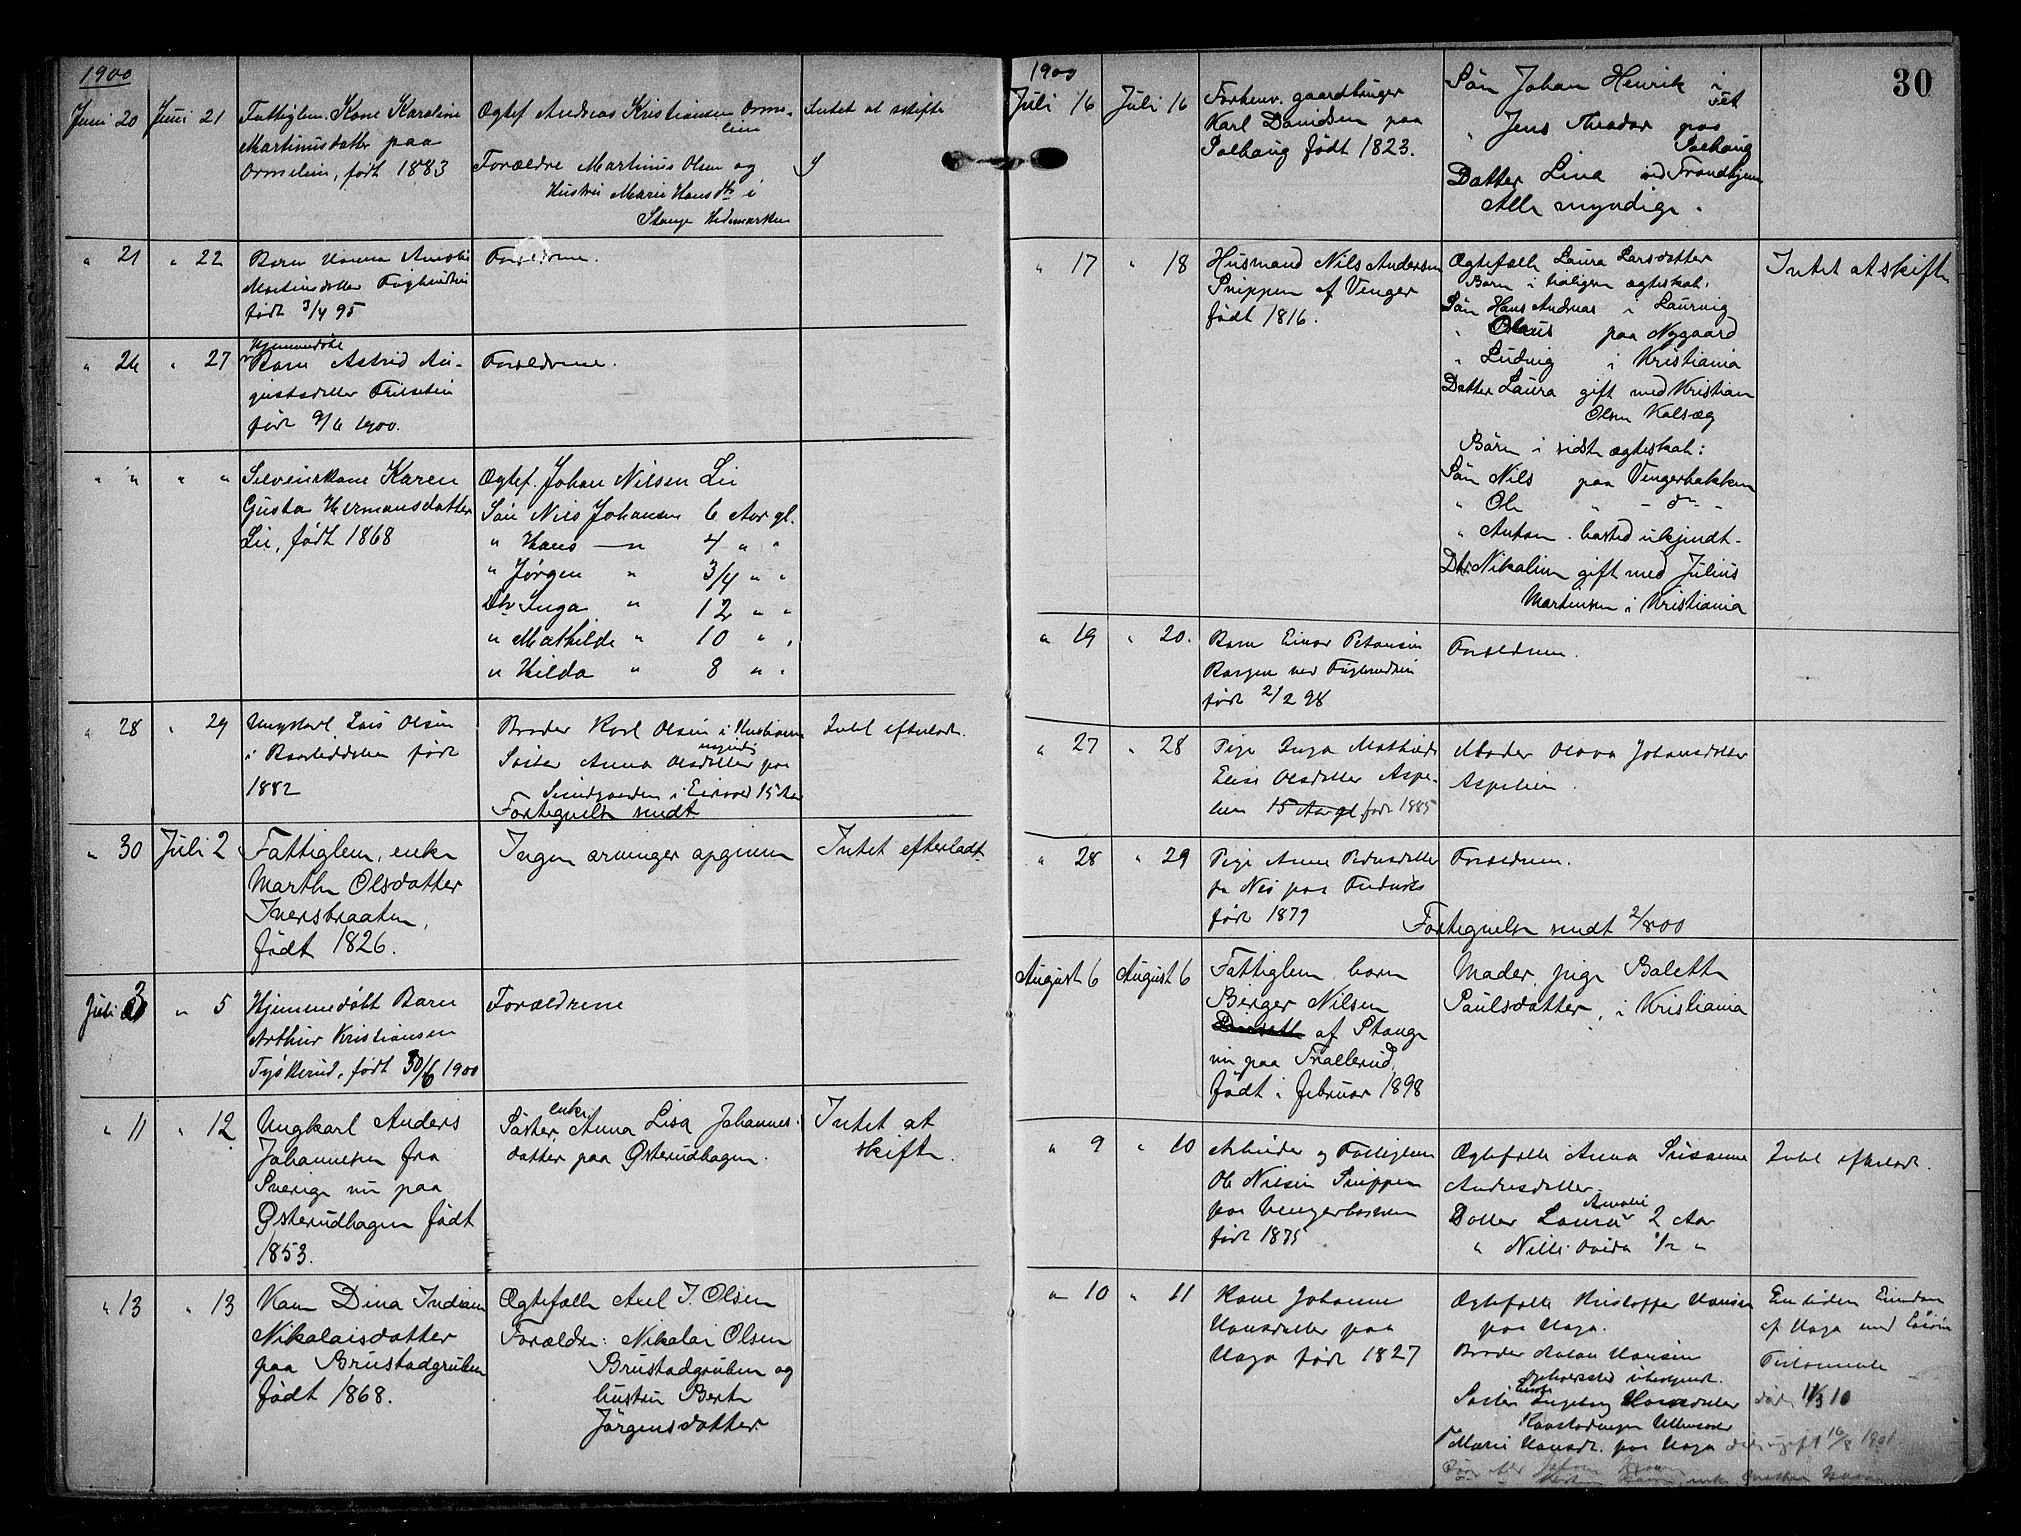 1900
Juni 20 Juni 21 Fattiglem, Kone Karoline Martinusdatter paa Ormelien, født 1883
Ægtef Andreas Kristiansen Ormelien
Forældre Martinus Olsen og
Hustru Marie Hansdtr i
Stange Hedemarken
Intet at skifte
" 21 " 22 Barn Hanna Amalie
Martinsdatter
født 3/4 95
Forældrene.
" 26 " 27 Hjemmedøbt
Barn Astrid Au-
gustsdatter
født 9/6 1900.
Forældrene.
" " " " Selveierkone Karen
Gusta Hermansdatter
Lie, født 1868
Ægtef. Johan Nilsen Lie
Søn Nils Johansen 6 Aar gl.
" Hans — " 4 " "
" Jørgen " 3/4 " "
Dtr Inga " 12 " "
" Mathilde " 10 " "
" Hilda " 8 " "
" 28 " 29 Ungkarl Lars Olsen
i født
1882
Broder Karl Olsen i Kristiania
myndig
Søster Anna Olsdatter paa
i Eidsvold 15 Aar
Fortegnelse sendt
Intet efterladt.
" 30 Juli 2 Fattiglem, enke
Marthe Olsdatter
Iversbraaten,
født 1826.
Ingen arvinger opgiven
Intet efterladt
Juli 3 " 5 Hjemmedøbt Barn
Arthur Kristiansen
Tyskerud, født 30/6 1900
Forældrene
" 11 " 12 Ungkarl Anders
Johannesen fra
Sverige nu paa
Østerudhagen født
1853.
enke
Søster, Anna Lisa Johannes-
datter paa Østerudhagen.
Intet at
skifte.
" 13 " 13 Kone Dina Indiane
Nikolaisdatter
paa Brustadgruben
født 1868.
Ægtefælle Axel J. Olsen
Forældre: Nikolai Olsen
Brustadgruben og
hustru Berte
Jørgensdatter.
30
1900
Juli 16 Juli 16 Forhenv. gaardbruger
Karl Davidsen paa
Solhaug født 1823.
Søn Johan Henrik i
Fet
" Jens Theodor paa
Solhaug
Datter Lina ved Trondhjem
Alle myndige.
" 17 " 18 Husmand Nils Andersen
Snippen af Venger
født 1816.
Ægtefælle Laura Larsdatter
Børn i tidligere ægteskab:
Søn Hans Andreas i Laurvig
" Olaus paa Nygaard
" Ludvig i Kristiania
Datter Laura gift med Kristian
Olsen Kalsæg
Børn i sidste ægteskab:
Søn Nils paa Vengerbakken
" Ole " - do - "
" Anton. bosted ukjendt -
Dtr Nikoline gift med Julius
Martinsen i Kristiania
Intet at skifte
" 19 " 20. Barn Einar
ved
født 2/2 98
Forældrene.
" 27 " 28 Pige Inga Mathilde
Elise Olsdatter Aspe-
lien 15 Aar gl. født 1885
Moder Olava Johansdatter
Aspelien.
" 28 " 29 Pige Anne
paa
født 1879
Forældrene.
Fortegnelse sendt 2/8 00
August 6 August 6 Fattiglem, barn
Birger Nilsen
af Stange
nu paa Trællerud,
født i februar 1898
Moder, pige Bolette
Paulsdatter, i Kristiania
" 9 " 10 Arbeider og Fattiglem
Ole Nilsen Snippen
paa Vengerbakken
født 1875
Ægtefælle Anna Susanne
Andersdatter
Amalie
Datter Laura 2 Aar
" 1/2 "
Intet efterladt.
" 10 " 11 Kone Johanne
Hansdatter paa
Haga født 1827
Ægtefælle Kristoffer Hansen
paa Haga.
Broder Hansen
opholdssted ubekjendt.
Enke
Søster Ingeborg Hansdatter
Ullensaker
" Marie Hansdr. paa Haga 16/8 1901
En liden Eiendom
af Haga med
død 11/3 10